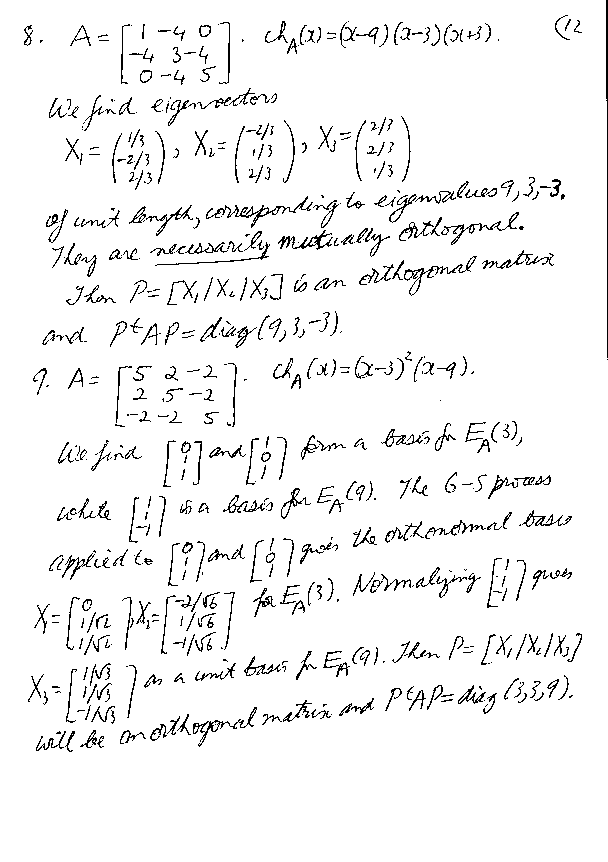 (12
8. A = [1 -4 0; -4 3 -4; 0 -4 5]. ch_A(x) = (x-9)(x-3)(x+3).
We find eigenvectors
X₁ = (1/3; -2/3; 2/3), X₂ = (-2/3; 1/3; 2/3), X₃ = (2/3; 2/3; 1/3)
of unit length, corresponding to eigenvalues 9, 3, -3.
They are necessarily mutually orthogonal.
Then P = [X₁|X₂|X₃] is an orthogonal matrix
and PᵗAP = diag(9, 3, -3).
9. A = [5 2 -2; 2 5 -2; -2 -2 5]. ch_A(x) = (x-3)²(x-9).
We find [0; 1; 1] and [1; 0; 1] form a basis for E_A(3),
while [1; 1; -1] is a basis for E_A(9). The G-S process
applied to [0; 1; 1] and [1; 0; 1] gives the orthonormal basis
X₁ = [0; 1/√2; 1/√2], X₂ = [-2/√6; 1/√6; -1/√6] for E_A(3). Normalizing [1; 1; -1] gives
X₃ = [1/√3; 1/√3; -1/√3] as a unit basis for E_A(9). Then P = [X₁|X₂|X₃]
will be an orthogonal matrix and PᵗAP = diag(3, 3, 9).